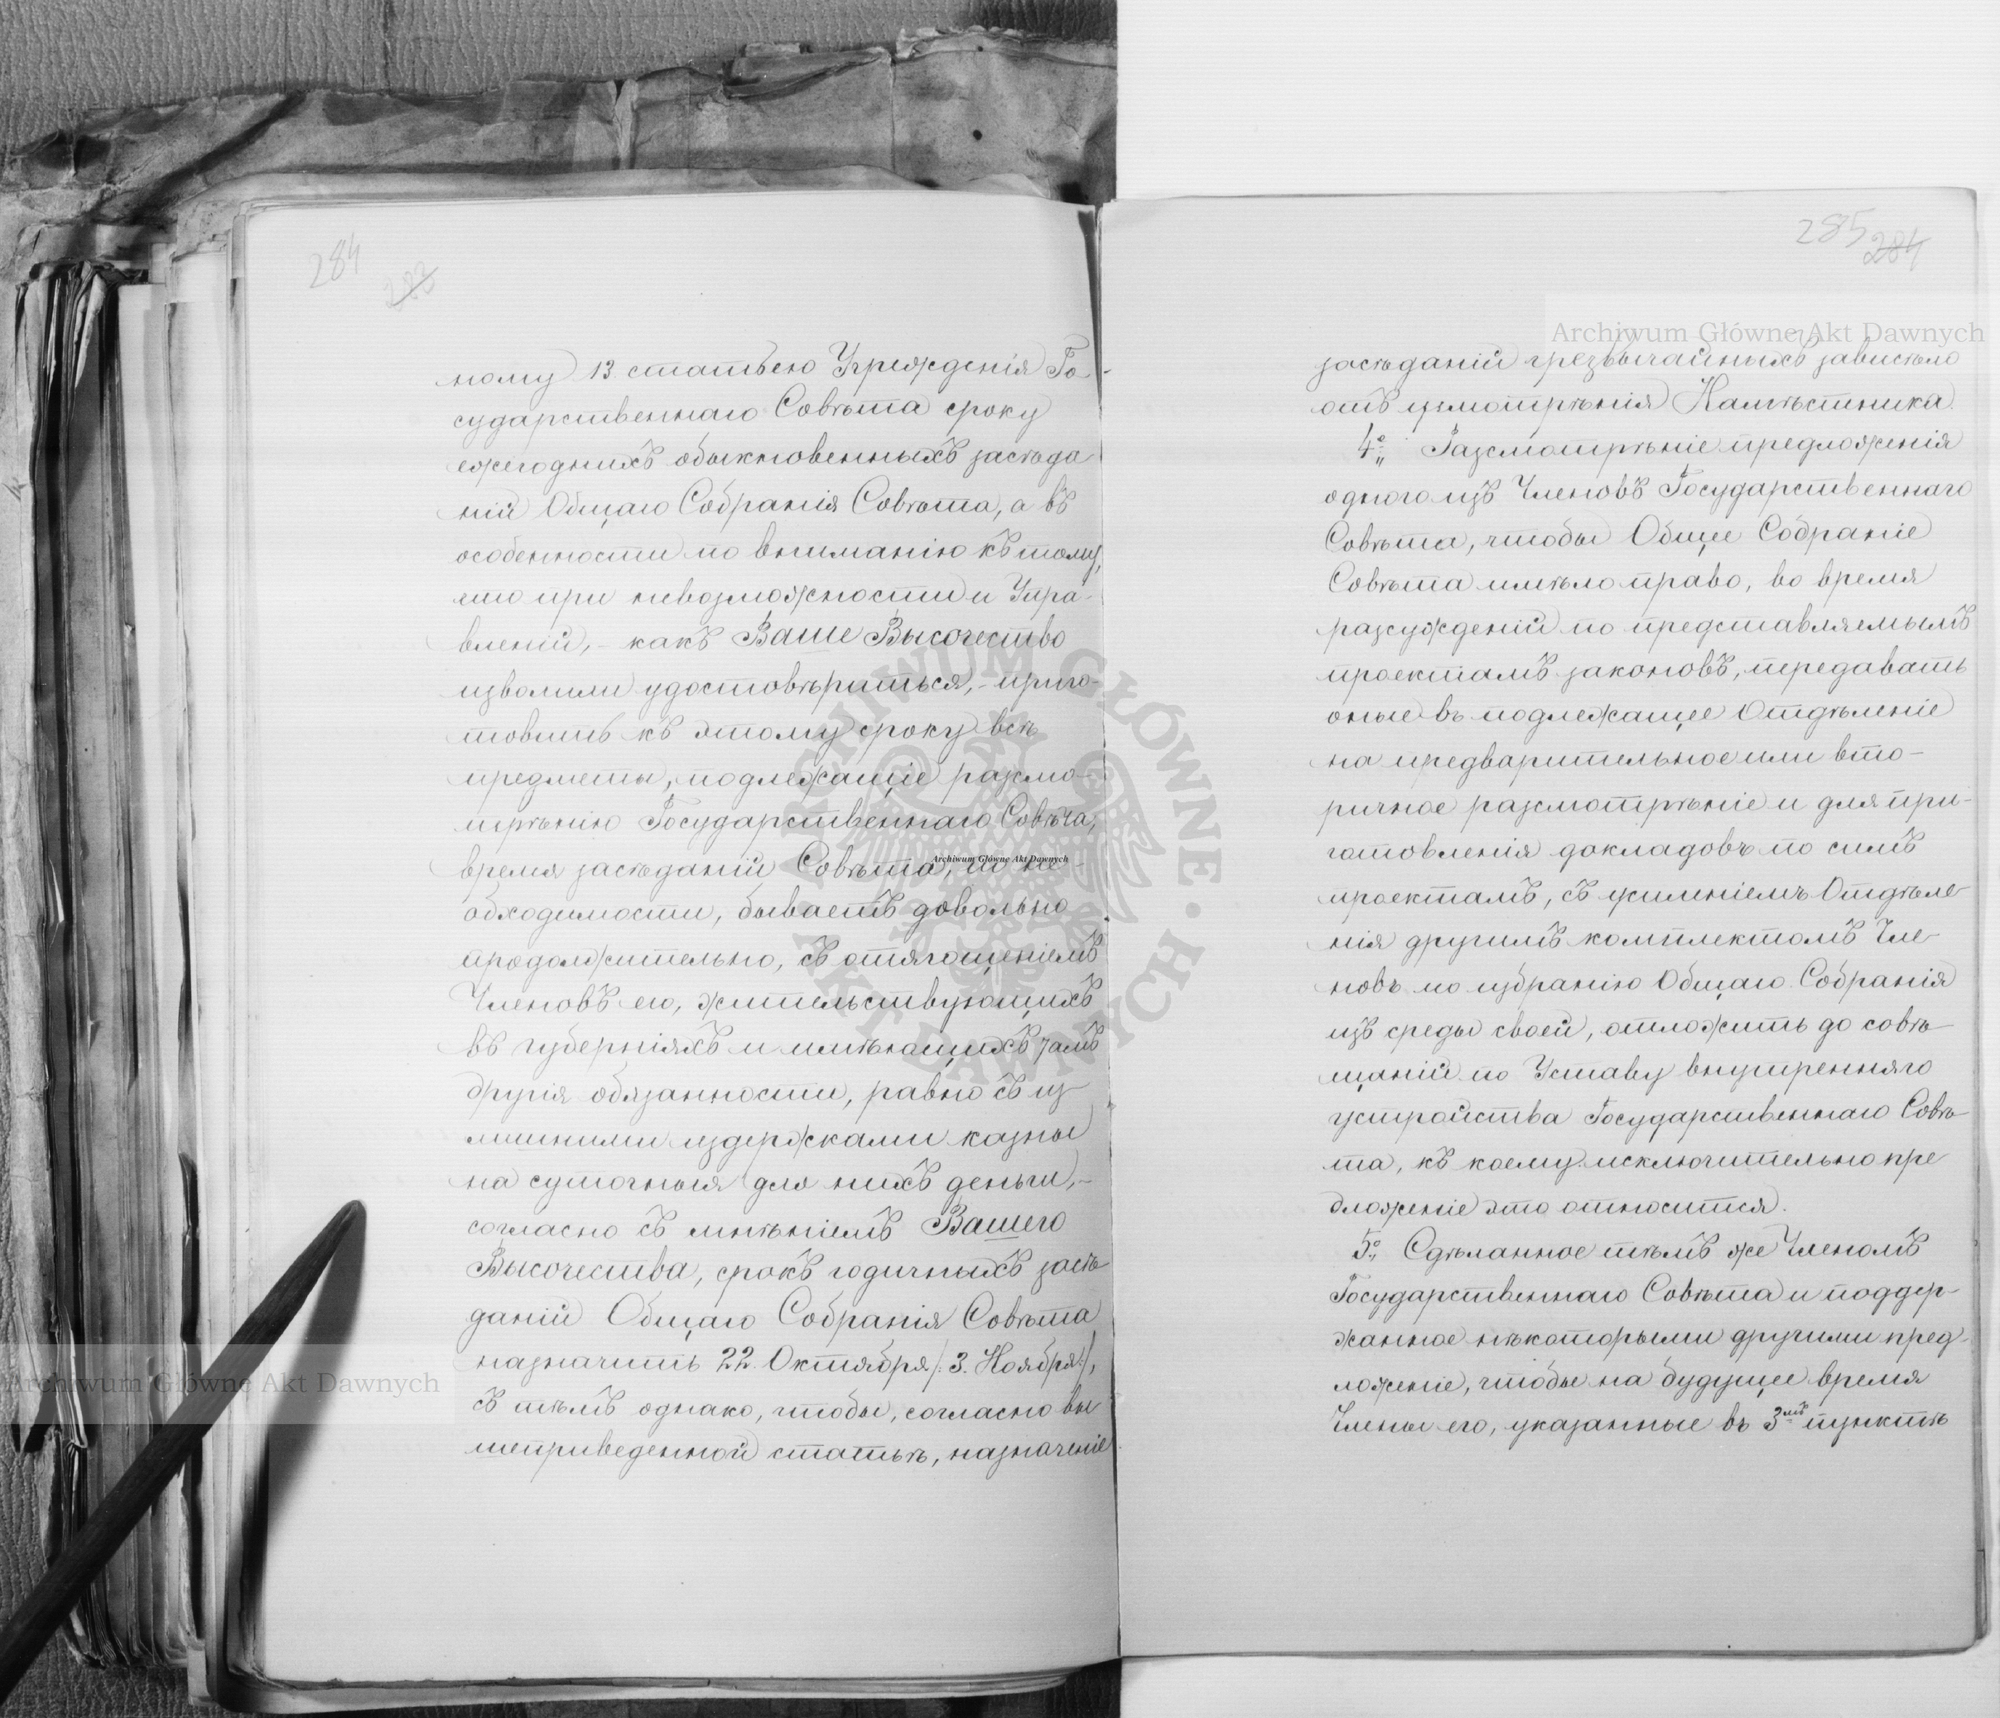 284
283
ному 13. статьею Учрежденія Го-
сударственнаго Совѣта сроку
ежегоднихъ обыкновенныхъ засѣда
ній Общаго Собранія Совѣта, а въ
особенности по вниманію къ тому,
что при невозможности и Упра-
вленій, - какъ Ваше Высочество
изволили удостовѣриться, - приго-
товить къ этому сроку всѣ
предметы, подлежащіе разсмо-
трѣнію Государственнаго Совѣта,
время засѣданій Совѣта, по не-
обходимости, бываетъ довольно
продолжительно, съ отягощеніемъ
Членовъ его, жительствующихъ
въ губерніяхъ и имѣющихъ тамъ
другія обязанности, равно съ из
лишними издержками казны
на суточныя для нихъ деньги, -
согласно съ мнѣніемъ Вашего
Высочества, срокъ годичныхъ засѣ
даній Общаго Собранія Совѣта
назначить 22. Октября /: 3. Ноября :/,
съ тѣмъ однако, чтобы, согласно вы
шеприведенной статьѣ, назначеніе
285
284
засѣданій чрезвычайныхъ зависѣло
отъ усмотрѣнія Намѣстника.
4º Разсмотрѣніе предложенія
одного изъ Членовъ Государственнаго
Совѣта, чтобы Общее Собраніе
Совѣта имѣло право, во время
разсужденій по представляемымъ
проектамъ законовъ, передавать
оные въ подлежащее Отдѣленіе
на предварительное или вто-
ричное разсмотрѣніе и для при-
готовленія докладовъ по симъ
проектамъ, съ усиленіемъ Отдѣле-
нія другимъ комплектомъ Чле-
новъ по избранію Общаго Собранія
изъ среды своей, отложить до совѣ-
щаній по Уставу внутренняго
устройства Государственнаго Совѣ-
та, къ коему исключительно пре
дложеніе это относится.
5º Сдѣланное тѣмъ же Членомъ
Государственнаго Совѣта и поддер-
жанное нѣкоторыми другими пред-
ложеніе, чтобы на будущее время
Члены его, указанные въ 3мъ пунктѣ
Archiwum Główne Akt Dawnych
Archiwum Główne Akt Dawnych
Archiwum Główne Akt Dawnych
ARCHIWUM GŁÓWNE · AKT DAWNYCH ·